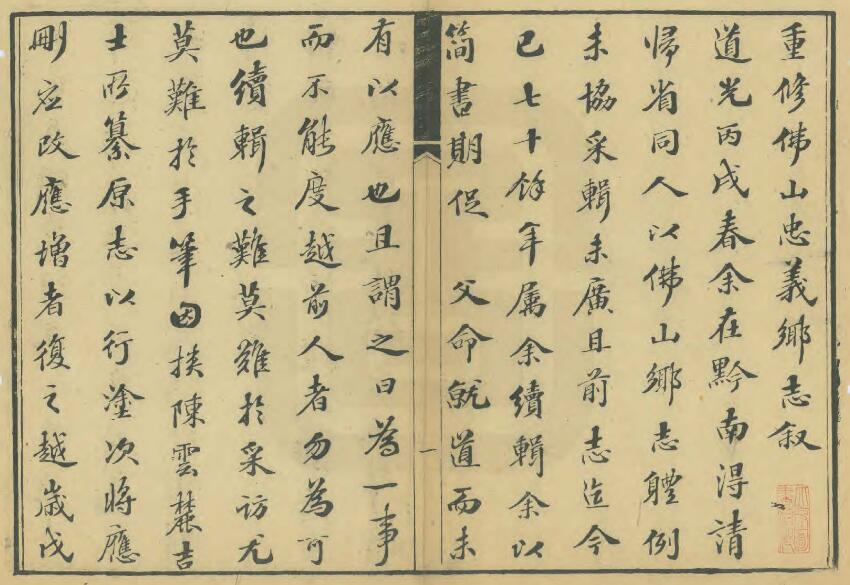 重修佛山忠義鄉志叙
道光丙戌春余在黔南得請
歸省同人以佛山鄉志體例
未協采輯未廣且前志迄今
已七十餘年属余續輯余以
简書期促　父命就道而未
一
有以應也且謂之曰為一事
而不能度越前人者勿為可
也續輯之難莫難於采訪尤
莫難於手筆因挟陳雲麓吉
士所纂原志以行塗次將應
刪應改應增者復之越歲戊